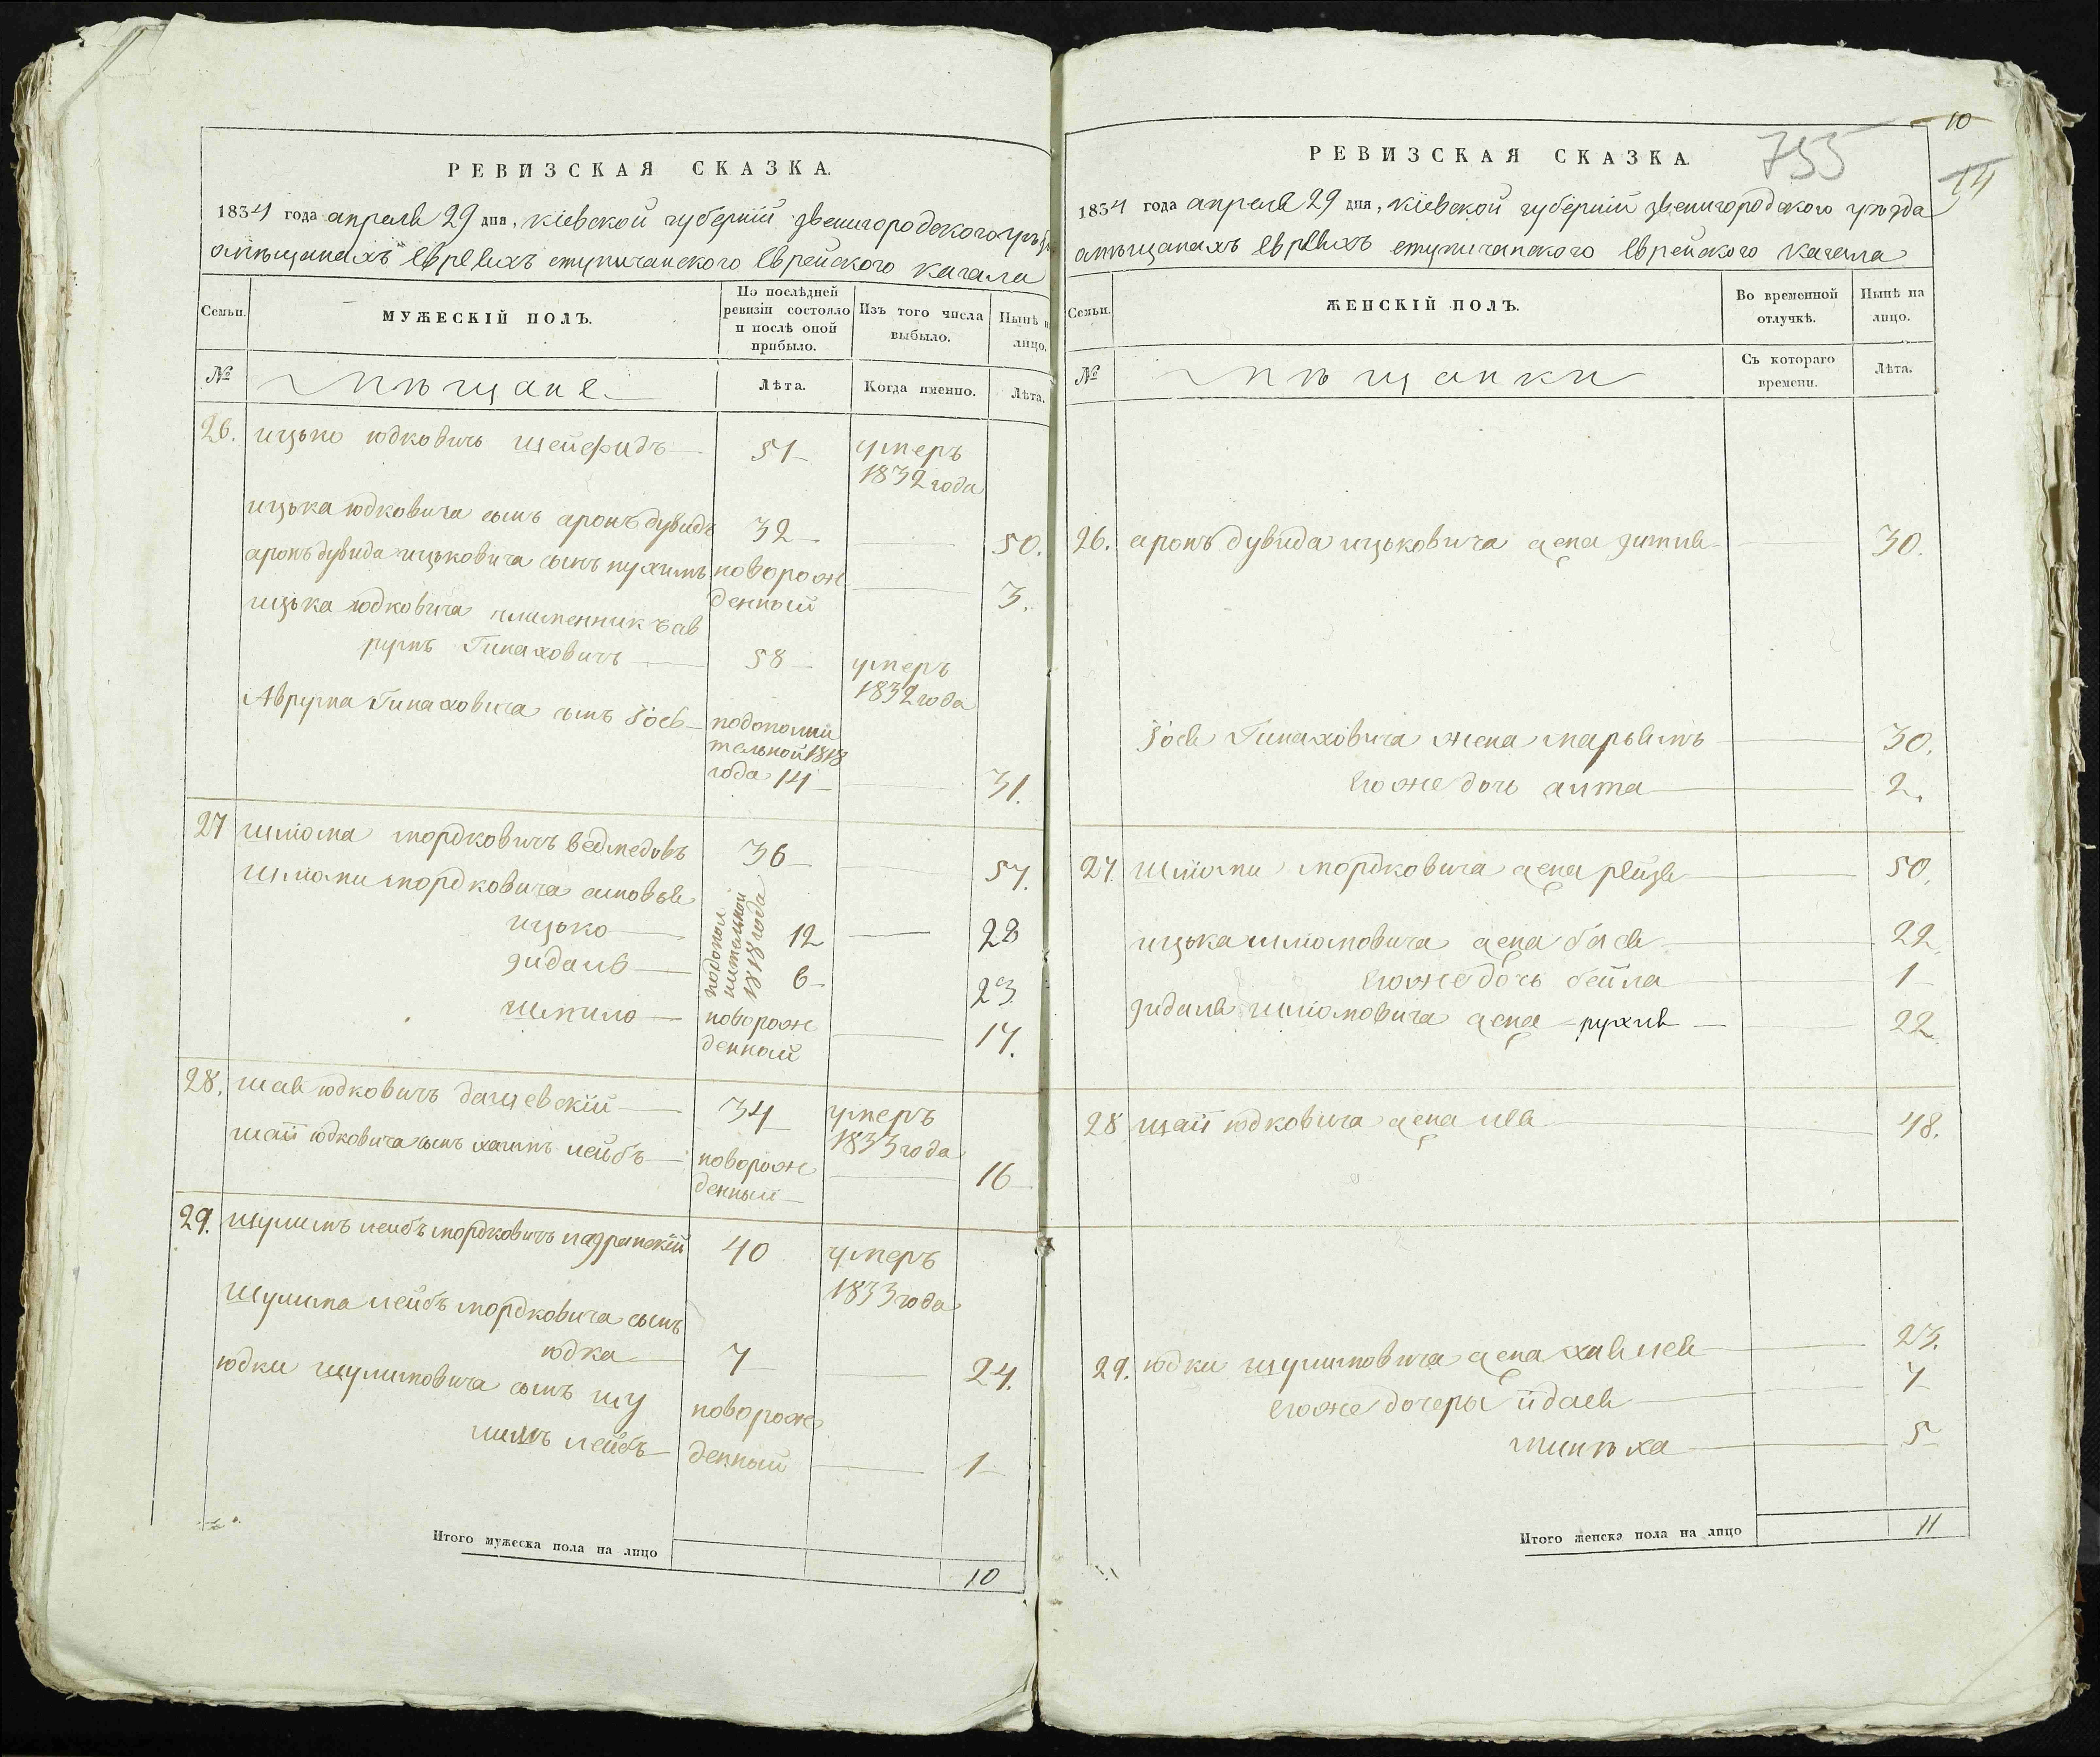 РЕВИЗСКАЯ СКАЗКА.
1834 года апреля 29 дня, кіевской губерніи звенигородского
омѣщанахъ евреяхъ еврейского кагала
Семьи.
МУЖЕСКІЙ ПОЛЪ.
По послѣдней ревизіи состояло и послѣ оной прибыло.
Изъ того числа выбыло.
Нынѣ на лицо.
№
мѣщане
Лѣта.
Когда именно.
Лѣта.
26. ицько юдковичь шейфидъ 51 умеръ
1832 года
ицька юдковича сынъ аронъ дувидъ 32 50.
аронъ дувида ицьковича сынъ нухимъ новорож
денный 3.
ицька юдковича племенникъ ав
румъ Гинаховичъ 58 умеръ
1832 года
Аврума Гинаховича сынъ Іось подополни
тельной 1818
года 14 31.
27 шліома мордковичъ ведмедовъ 36 57.
шліоми мордковича сыновья
подополнительной 1818 года
ицько 12 28
зидаль 6 23
шмило новорож
денный 17.
28. шая юдковичъ дашевскій 34 умеръ
1833 года
шаи юдковича сынъ хаимъ лейбъ новорож
денный 16
29. шулимъ лейбъ мордковичъ 40 умеръ
1833 года
шулима лейбъ мордковича сынъ
юдка 7 24.
юдки шулимовича сынъ шу
лимъ лейбъ новорож
денный 1
Итого мужеска пола на лицо
10
10
755
14
РЕВИЗСКАЯ СКАЗКА.
1834 года апреля 29 дня, кіевской губерніи звенигородского уѣзда
омѣщанахъ евреяхъ еврейского кагала
Семьи.
ЖЕНСКІЙ ПОЛЪ.
Во временной отлучкѣ.
Нынѣ на лицо.
№
мѣщанки
Съ котораго времени.
Лѣта.
26. аронъ дувида ицьковича жена 30.
Іося Гинаховича жена марьямъ 30.
егоже дочь 2.
27. шліоми мордковича жена рейзя 50.
ицька шліомовича жена бася 22
егоже дочь бейла 1
зидаля шліомовича жена рухля 22
28 шаи юдковича жена лея 48.
29. юдки шулимовича жена 23.
егоже дочеры 7
миньха 5
Итого женска пола на лицо
11